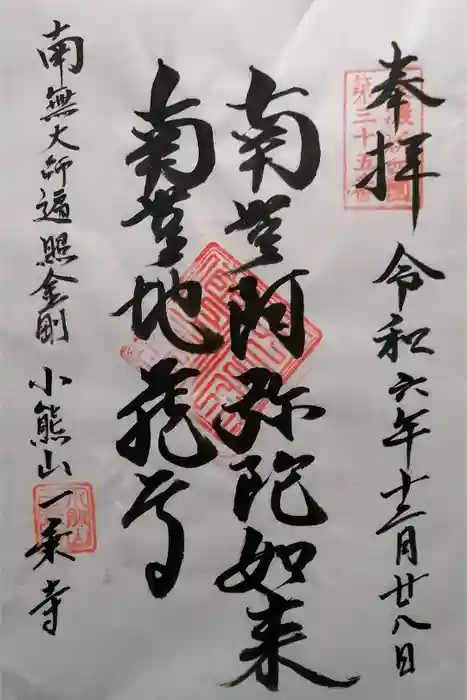 奉拝
令和六年十二月廿八日
第三十五番
南無阿弥陀如来
南無地蔵尊
南無大師遍照金剛
小熊山一乗寺